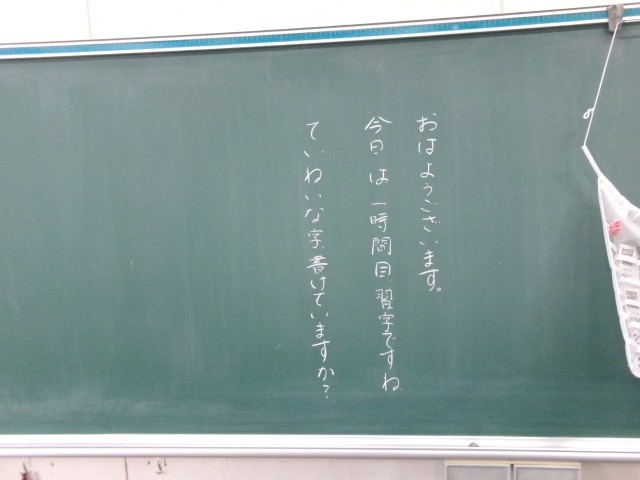 おはようございます。
今日は一時間目習字ですね
ていねいな字書けていますか?